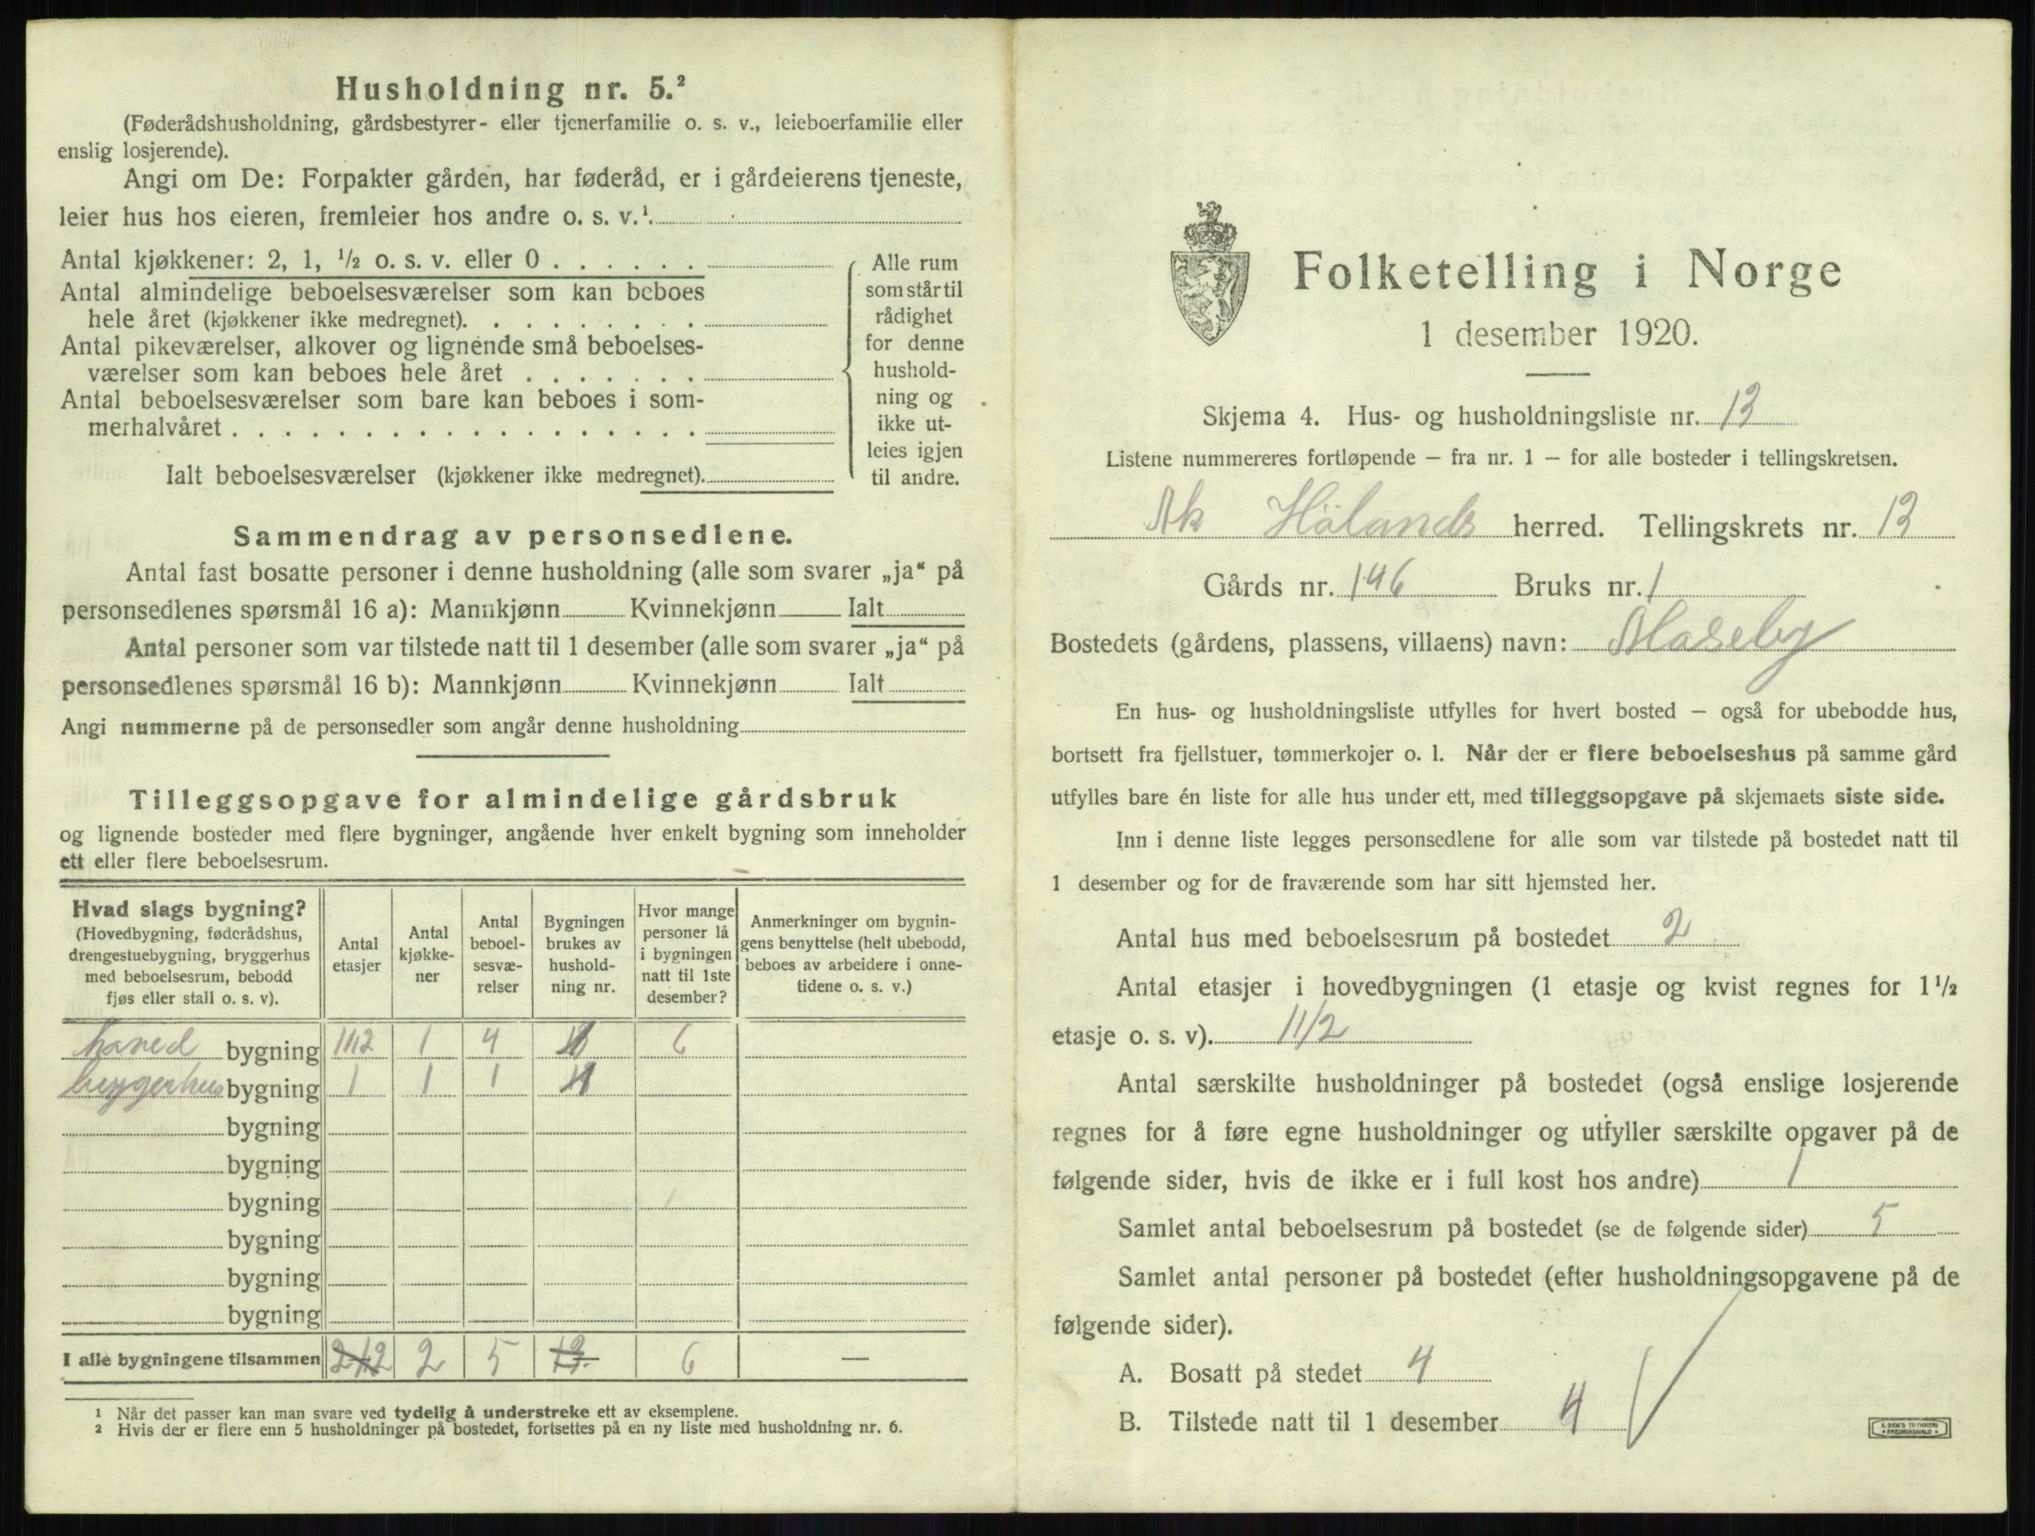 Husholdning nr. 5.²
(Føderådshusholdning, gårdsbestyrer- eller tjenerfamilie o. s. v., leieboerfamilie eller
enslig losjerende).
Angi om De: Forpakter gården, har føderåd, er i gårdeierens tjeneste,
leier hus hos eieren, fremleier hos andre o. s. v.¹.
Antal kjøkkener: 2, 1, ½ o. s. v. eller 0 . . . . . .
Antal almindelige beboelsesværelser som kan beboes
hele året (kjøkkener ikke medregnet). . . . . . . . .
Antal pikeværelser, alkover og lignende små beboelses-
værelser som kan beboes hele året . . . . . . .
Antal beboelsesværelser som bare kan beboes i som-
merhalvåret . . . . . . . . . . . . . . . . . .
Ialt beboelsesværelser (kjøkkener ikke medregnet).
Alle rum
som står til
rådighet
for denne
hushold-
ning og
ikke ut-
leies igjen
til andre.
Sammendrag av personsedlene.
Antal fast bosatte personer i denne husholdning (alle som svarer „ja“ på
personsedlenes spørsmål 16 a): Mannkjønn Kvinnekjønn Ialt
Antal personer som var tilstede natt til 1 desember (alle som svarer „ja“ på
personsedlenes spørsmål 16 b): Mannkjønn Kvinnekjønn Ialt
Angi nummerne på de personsedler som angår denne husholdning
Tilleggsopgave for almindelige gårdsbruk
og lignende bosteder med flere bygninger, angående hver enkelt bygning som inneholder
ett eller flere beboelsesrum.
Hvad slags bygning?
(Hovedbygning, føderådshus,
drengestuebygning, bryggerhus
med beboelsesrum, bebodd
fjøs eller stall o. s. v).
Antal
etasjer
Antal
kjøkke-
ner
Antal
beboel-
sesvæ-
relser
Bygningen
brukes av
hushold-
ning nr.
Hvor mange
personer lå
i bygningen
natt til 1ste
desember?
Anmerkninger om bygnin-
gens benyttelse (helt ubebodd,
beboes av arbeidere i onne-
tidene o. s. v.)
hoved bygning 11/2 1 4 1 6
bryggerhus bygning 1 1 1 1
bygning
bygning
bygning
bygning
bygning
bygning
I alle bygningene tilsammen 2 5 6 —
¹ Når det passer kan man svare ved tydelig å understreke ett av eksemplene.
² Hvis der er flere enn 5 husholdninger på bostedet, fortsettes på en ny liste med husholdning nr. 6.
Folketelling i Norge
1 desember 1920.
Skjema 4. Hus- og husholdningsliste nr. 13
Listene nummereres fortløpende – fra nr. 1 – for alle bosteder i tellingskretsen.
Ak Hølands herred. Tellingskrets nr. 13
Gårds nr. 146 Bruks nr. 1
Bostedets (gårdens, plassens, villaens) navn:
En hus- og husholdningsliste utfylles for hvert bosted – også for ubebodde hus,
bortsett fra fjellstuer, tømmerkojer o. l. Når der er flere beboelseshus på samme gård
utfylles bare én liste for alle hus under ett, med tilleggsopgave på skjemaets siste side.
Inn i denne liste legges personsedlene for alle som var tilstede på bostedet natt til
1 desember og for de fraværende som har sitt hjemsted her.
Antal hus med beboelsesrum på bostedet 2
Antal etasjer i hovedbygningen (1 etasje og kvist regnes for 1½
etasje o. s. v). 11/2
Antal særskilte husholdninger på bostedet (også enslige losjerende
regnes for å føre egne husholdninger og utfyller særskilte opgaver på de
følgende sider, hvis de ikke er i full kost hos andre) 1
Samlet antal beboelsesrum på bostedet (se de følgende sider) 5
Samlet antal personer på bostedet (efter husholdningsopgavene på de
følgende sider).
A. Bosatt på stedet 4
B. Tilstede natt til 1 desember 4